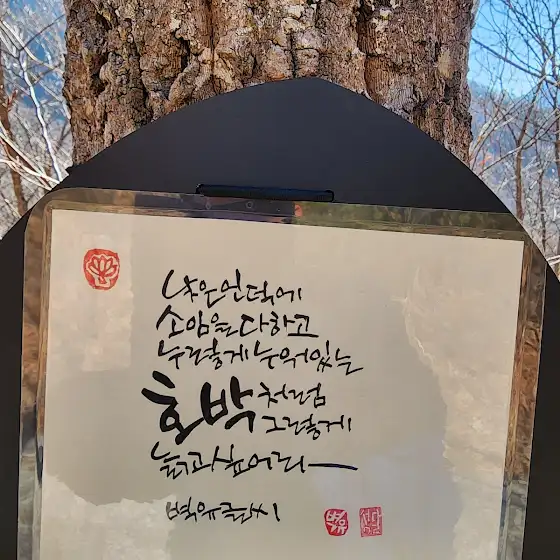 낮은언덕에
소임을다하고
누렇게누워있는
호박처럼
그렇게
늙고싶어라
벽유글씨
벽유